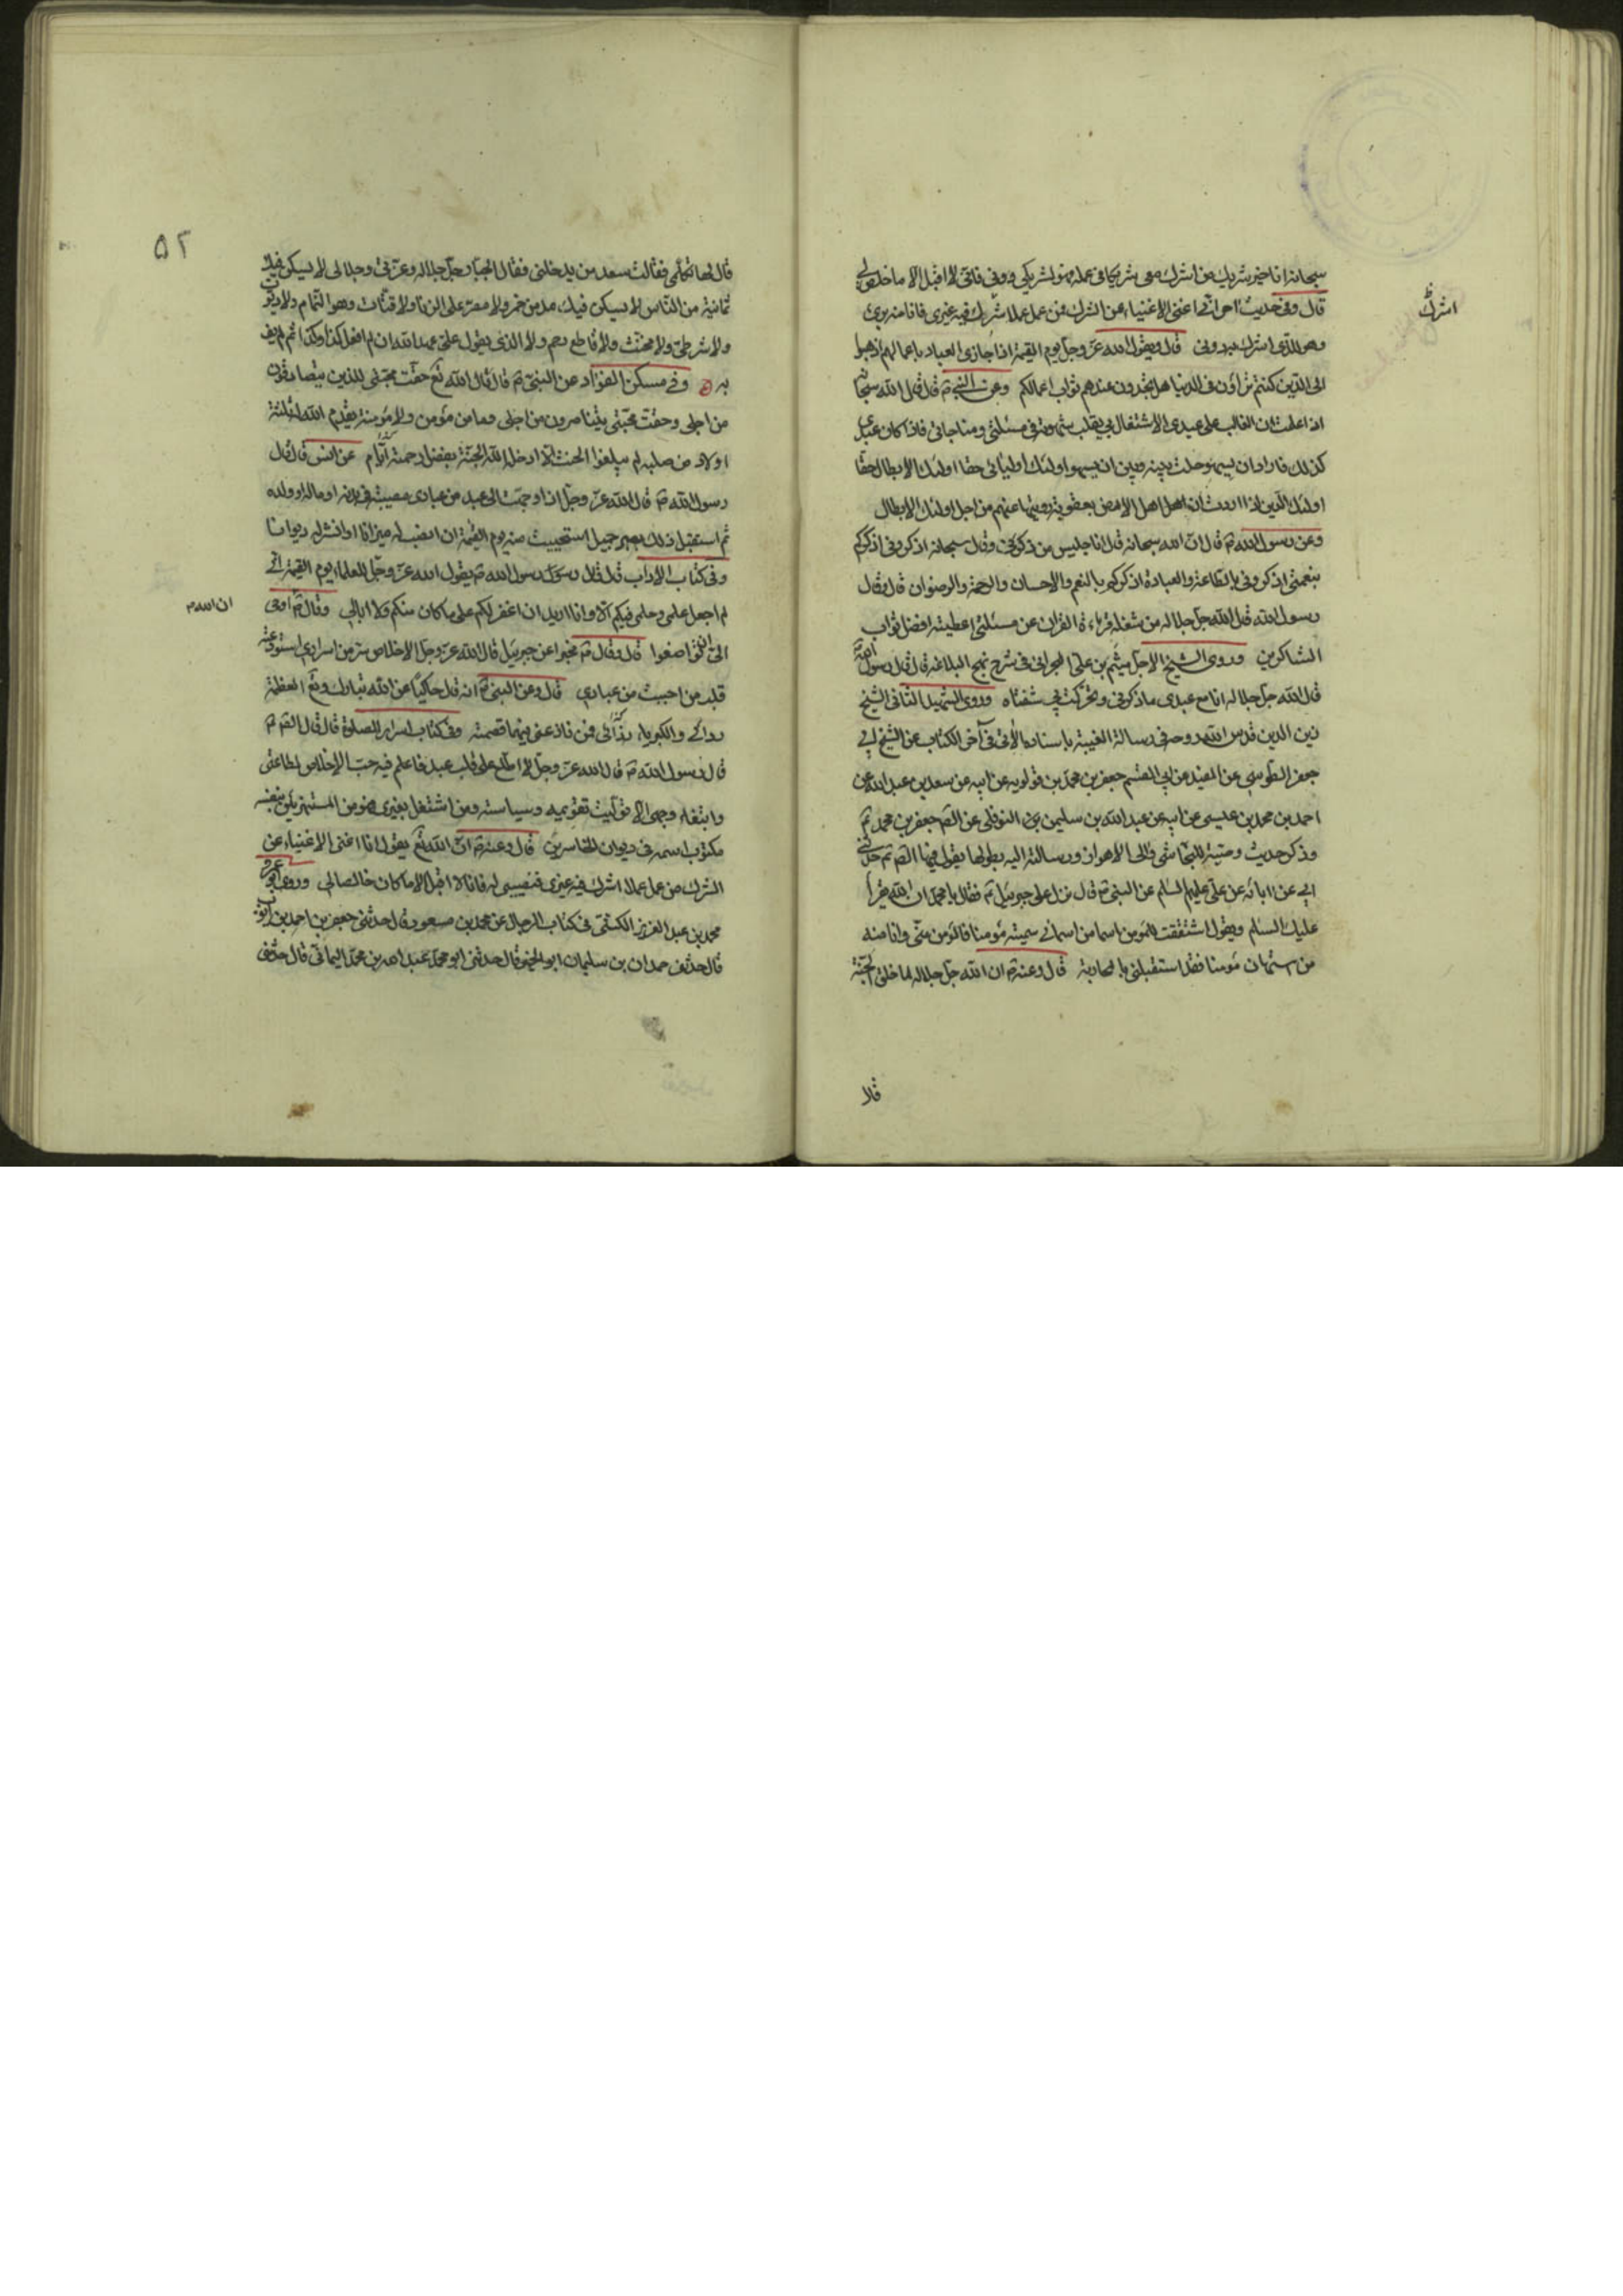 سبحانه انا خير شريك من اشرك معي شريكا في عمله فهو لشريكي دوني فاني لا اقبل الا ما خلص لي
اشرك
قال وفي حديث آخر اني اغنى الاغنياء عن الشرك فمن عمل عملا اشرك فيه غيري فانا منه بريء
وهو للذي اشرك به دوني قال ويقول الله عز وجل يوم القيمة اذا جازى العباد باعمالهم اذهبوا
الى الذين كنتم تراؤن في الدنيا هل تجدون عندهم ثواب اعمالكم وعن النبي ص قال قال الله سبحانه
اذا علمت ان الغالب على عبدي الاشتغال بي نقلت شهوته في مسئلتي ومناجاتي فاذا كان عبدي
كذلك فاراد ان يسهو حلت بينه وبين ان يسهو اولئك اوليائي حقا اولئك الابطال حقا
اولئك الذين اذا اردت ان اهلك اهل الارض بعقوبة زويتها عنهم من اجل اولئك الابطال
وعن رسول الله ص قال ان الله سبحانه قال انا جليس من ذكرني وقال سبحانه اذكروني اذكركم
بنعمتي اذكروني بالطاعة والعبادة اذكركم بالنعم والاحسان والرحمة والرضوان قال وقال
رسول الله قال الله جل جلاله من شغله قراءة القران عن مسئلتي اعطيته افضل ثواب
الشاكرين وروى الشيخ الاجل ميثم بن علي البحراني في شرح نهج البلاغه قال قال رسول الله ص
قال الله جل جلاله انا مع عبدي ما ذكرني وتحركت بي شفتاه وروى الشهيد الثاني الشيخ
زين الدين قدس الله روحه في رسالة الغيبة باسناده الآتي في آخر الكتاب عن الشيخ ابي
جعفر الطوسي عن المفيد عن ابي القسم جعفر بن محمد بن قولويه عن ابيه عن سعد بن عبد الله عن
احمد بن محمد بن عيسى عن ابيه عن عبد الله بن سليمن النوفلي عن الصم جعفر بن محمد ع
وذكر حديث وصية للنجاشي والي الاهواز ورسالته اليه بطولها يقول فيها الصم ع حدثني
ابي عن ابائه عن علي عليهم السلم عن النبي ص قال نزل علي جبرئيل ع فقال يا محمد ان الله يقرأ
عليك السلم ويقول اشتققت للمؤمن اسما من اسمائي سميته مؤمنا فالمؤمن مني وانا منه
من استهان مؤمنا فقد استقبلني بالمحاربة قال وعنه ص ان الله جل جلاله لما خلق الجنة
قالا
٥٢
قال لها تكلمي فقالت سعد من يدخلني فقال الجبار جل جلاله وعزتي وجلالي لا يسكن فيك
ثمانية من الناس لا يسكن فيك مدمن خمر ولا مصر على الزنا ولا قتات وهو النمام ولا ديوث
ولا شرطي ولا مخنث ولا قاطع رحم ولا الذي يقول علي عهد الله ان لم افعل كذا وكذا ثم لم يف
به وفي مسكن الفؤاد عن النبي ص قال قال الله تع حقت محبتي للذين يتصادقون
من اجلي وحقت محبتي للذين يتناصرون من اجلي وما من مؤمن ولا مؤمنة يقدم الله له ثلثة
اولاد من صلبه لم يبلغوا الحنث الا ادخله الله الجنة بفضل رحمته اياهم عن انس قال قال
رسول الله ص قال الله عز وجل اذا وجهت الى عبد من عبادي مصيبة في بدنه او ماله او ولده
ثم استقبل ذلك بصبر جميل استحييت منه يوم القيمة ان انصب له ميزانا او انشر له ديوانا
وفي كتاب الاداب قال قال رسول الله ص يقول الله عز وجل للعلماء يوم القيمة اني
لم اجعل علمي وحلمي فيكم الا وانا اريد ان اغفر لكم على ما كان منكم ولا ابالي وقال ص اوحى
ان الله
الي ان تواضعوا قال وقال ص مخبرا عن جبرئيل قال الله عز وجل الاخلاص سر من اسراري استودعته
قلب من احببت من عبادي قال وعن النبي ص انه قال حاكيا عن الله تبارك وتع العظمة
ردائي والكبرياء ازاري فمن نازعني فيهما قصمته وفي كتاب اسرار الصلوة قال قال الصم ع
قال رسول الله ص قال الله عز وجل لا اطلع على قلب عبد فاعلم فيه حب الاخلاص لطاعتي
وابتغاء وجهي الا توليت تقويمه وسياسته ومن اشتغل بغيري فهو من المستهزئين بنفسه
مكتوب اسمه في ديوان الخاسرين قال وعنه ص ان الله تع يقول انا اغنى الاغنياء عن
الشرك من عمل عملا اشرك فيه غيري فنصيبي له فانا لا اقبل الا ما كان خالصا لي وروى ابو عمرو
محمد بن عبد العزيز الكشي في كتاب الرجال عن محمد بن مسعود قال حدثني جعفر بن احمد بن ايوب
قال حدثني حمدان بن سليمان ابو الخير قال حدثني ابو محمد عبد الله بن محمد اليماني قال حدثني